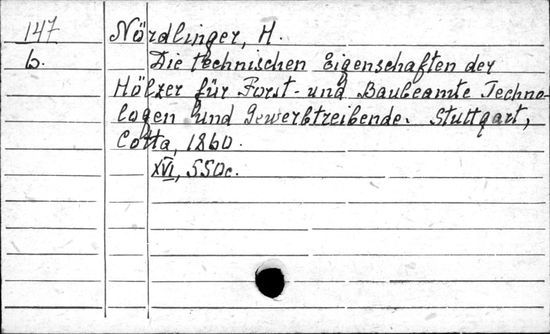 147 Nördlinger, H.
b. Die technischen Eigenschaften der
Hölzer für Forst- und Baubeamte Techno-
logen und Gewerbtreibende. Stuttgart,
Cotta, 1860.
XVI, 550c.